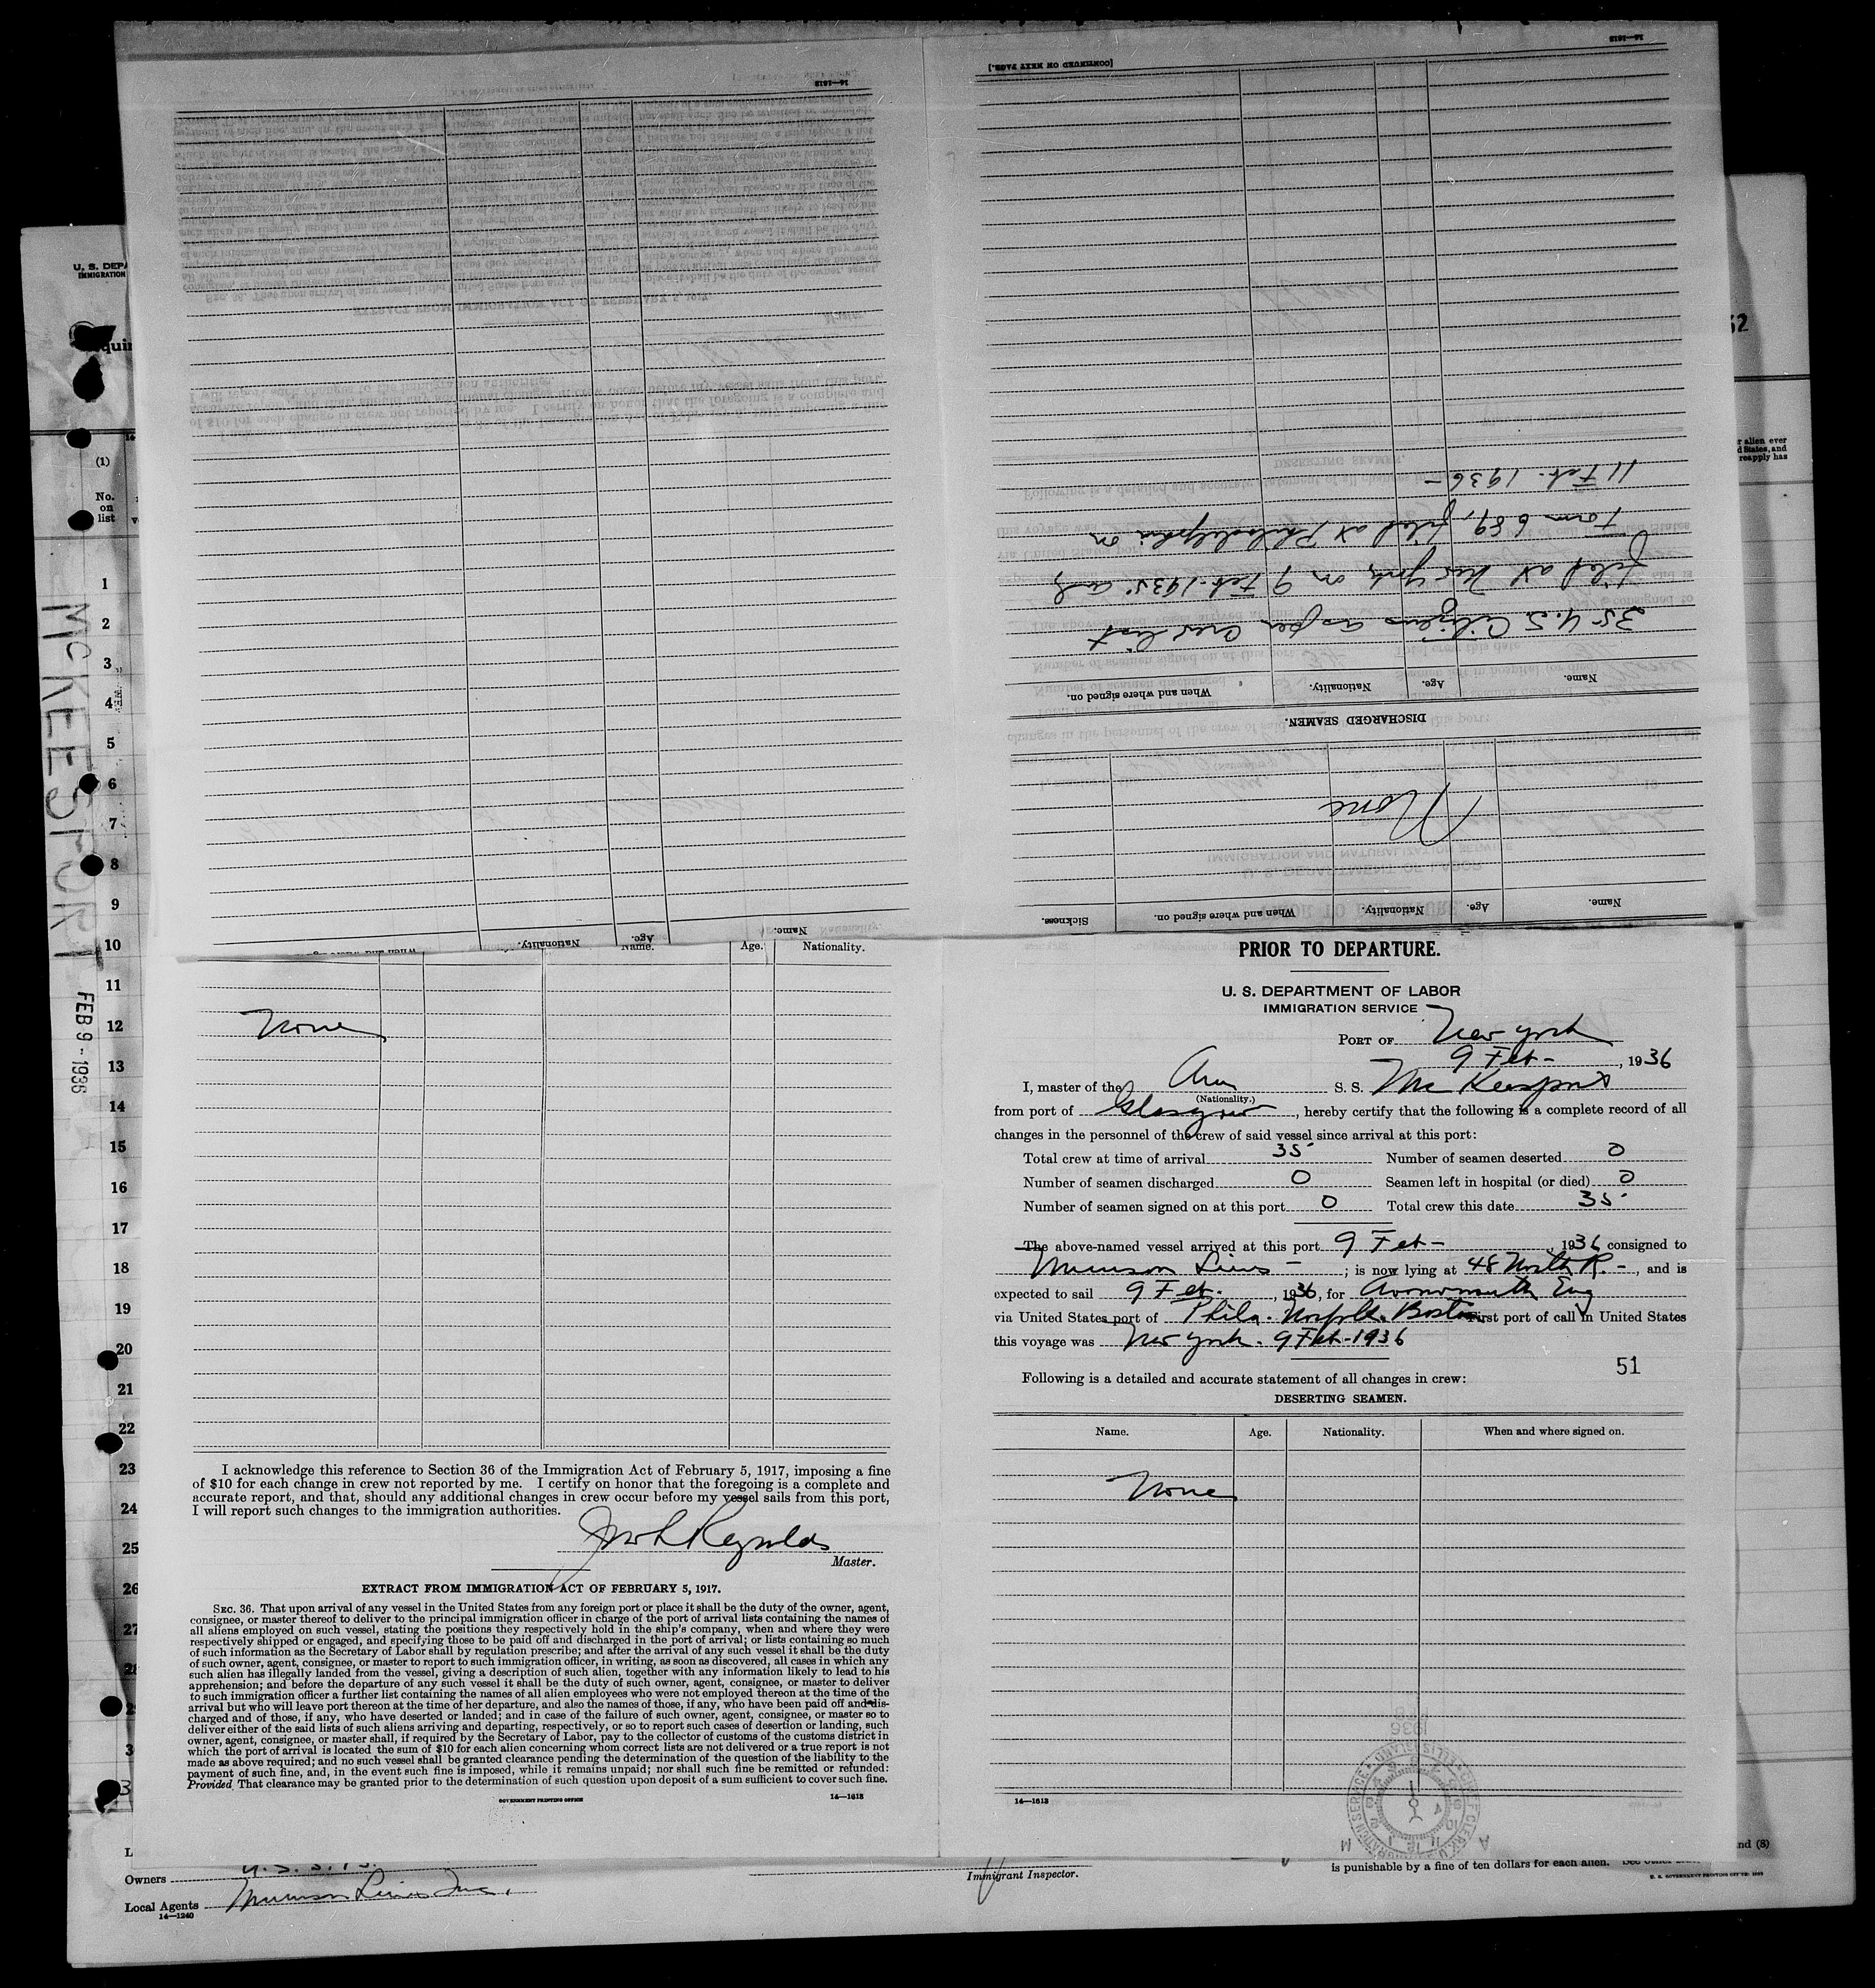 U. S. DEPA
IMMIGRATION
quir
(1)
No.
on
list
1
2
3
4
5
6
7
8
9
10
11
12
13
14
15
16
17
18
19
20
21
22
23
24
25
26
27
28
2
3
3
McKEESPORT
FEB 9 - 1936
52
r alien ever
d States, and
reapply has
14—1613
Name. Age. Nationality.
14—1613
[CONTINUED ON NEXT PAGE.]
11 Feb. 1936 -
Form 689, filed at Philadelphia on
filed at New York on 9 Feb. 1935 and
35 U.S Citizens as per Crew list
Name. Age. Nationality. When and where signed on.
DISCHARGED SEAMEN.
None
Name. Age. Nationality. When and where signed on. Sickness.
Name. Age. Nationality.
None
I acknowledge this reference to Section 36 of the Immigration Act of February 5, 1917, imposing a fine
of $10 for each change in crew not reported by me. I certify on honor that the foregoing is a complete and
accurate report, and that, should any additional changes in crew occur before my vessel sails from this port,
I will report such changes to the immigration authorities.
Jno L Reynolds
Master.
EXTRACT FROM IMMIGRATION ACT OF FEBRUARY 5, 1917.
SEC. 36. That upon arrival of any vessel in the United States from any foreign port or place it shall be the duty of the owner, agent,
consignee, or master thereof to deliver to the principal immigration officer in charge of the port of arrival lists containing the names of
all aliens employed on such vessel, stating the positions they respectively hold in the ship's company, when and where they were
respectively shipped or engaged, and specifying those to be paid off and discharged in the port of arrival; or lists containing so much
of such information as the Secretary of Labor shall by regulation prescribe; and after the arrival of any such vessel it shall be the duty
of such owner, agent, consignee, or master to report to such immigration officer, in writing, as soon as discovered, all cases in which any
such alien has illegally landed from the vessel, giving a description of such alien, together with any information likely to lead to his
apprehension; and before the departure of any such vessel it shall be the duty of such owner, agent, consignee, or master to deliver
to such immigration officer a further list containing the names of all alien employees who were not employed thereon at the time of the
arrival but who will leave port thereon at the time of her departure, and also the names of those, if any, who have been paid off and dis-
charged and of those, if any, who have deserted or landed; and in case of the failure of such owner, agent, consignee, or master so to
deliver either of the said lists of such aliens arriving and departing, respectively, or so to report such cases of desertion or landing, such
owner, agent, consignee, or master shall, if required by the Secretary of Labor, pay to the collector of customs of the customs district in
which the port of arrival is located the sum of $10 for each alien concerning whom correct lists are not delivered or a true report is not
made as above required; and no such vessel shall be granted clearance pending the determination of the question of the liability to the
payment of such fine, and, in the event such fine is imposed, while it remains unpaid; nor shall such fine be remitted or refunded:
Provided, That clearance may be granted prior to the determination of such question upon deposit of a sum sufficient to cover such fine.
GOVERNMENT PRINTING OFFICE 14—1613
PRIOR TO DEPARTURE.
U. S. DEPARTMENT OF LABOR
IMMIGRATION SERVICE
PORT OF New York
9 Feb - , 1936
I, master of the Am S. S. McKeesport
(Nationality.)
from port of Glasgow, hereby certify that the following is a complete record of all
changes in the personnel of the crew of said vessel since arrival at this port:
Total crew at time of arrival 35 Number of seamen deserted 0
Number of seamen discharged 0 Seamen left in hospital (or died) 0
Number of seamen signed on at this port 0 Total crew this date 35
The above-named vessel arrived at this port 9 Feb - , 1936 consigned to
Munson Lines - ; is now lying at 48 North R. - , and is
expected to sail 9 Feb. , 1936, for Avonmouth Eng
via United States port of Phila. Norfolk. Boston First port of call in United States
this voyage was New York. 9 Feb - 1936
51
Following is a detailed and accurate statement of all changes in crew:
DESERTING SEAMEN.
Name. Age. Nationality. When and where signed on.
None
14—1613
1936
CHIEF CLERK
ELLIS ISLAND
L
Owners U.S.S.B.
Local Agents Munson Line Inc.
14—1240
Immigrant Inspector.
nd (8)
is punishable by a fine of ten dollars for each alien.